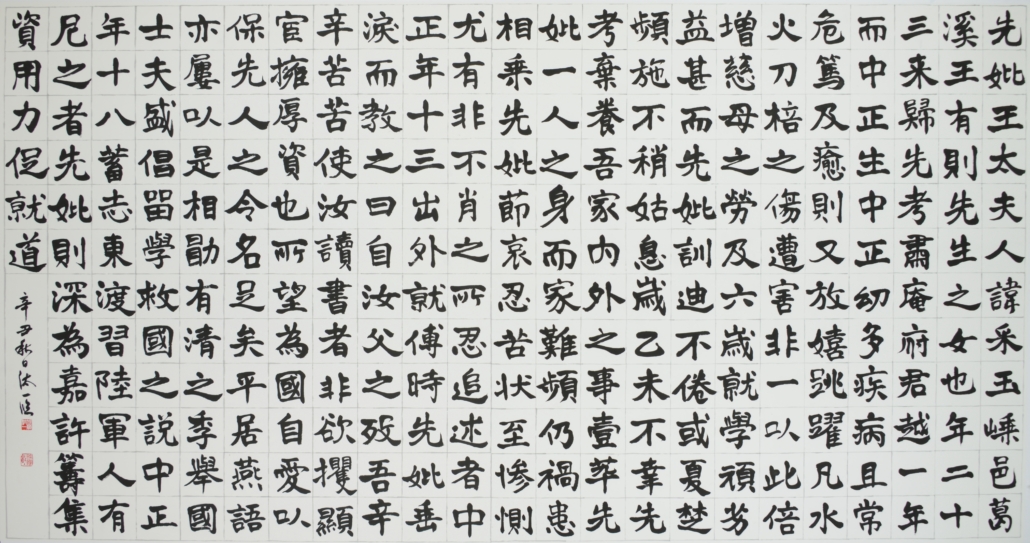 先妣王太夫人諱采玉嵊邑葛
溪王有則先生之女也年二十
三来歸先考肅庵府君越一年
而中正生中正幼多疾病且常
危篤及癒則又放嬉跳躍凡水
火刀棓之傷遭害非一以此倍
增慈母之勞及六歲就學頑劣
益甚而先妣訓迪不倦或夏楚
頻施不稍姑息歲乙未不幸先
考棄養吾家内外之事壹萃先
妣一人之身而家難頻仍禍患
相乘先妣節哀忍苦状至慘惻
尤有非不肖之所忍追述者中
正年十三出外就傅時先妣垂
淚而教之曰自汝父之歿吾辛
辛苦苦使汝讀書者非欲攫顯
官擁厚資也所望為國自愛以
保先人之令名足矣平居燕語
亦屢以是相勖有清之季舉國
士夫盛倡留學救國之説中正
年十八蓄志東渡習陸軍人有
尼之者先妣則深為嘉許籌集
資用力促就道
辛丑秋日